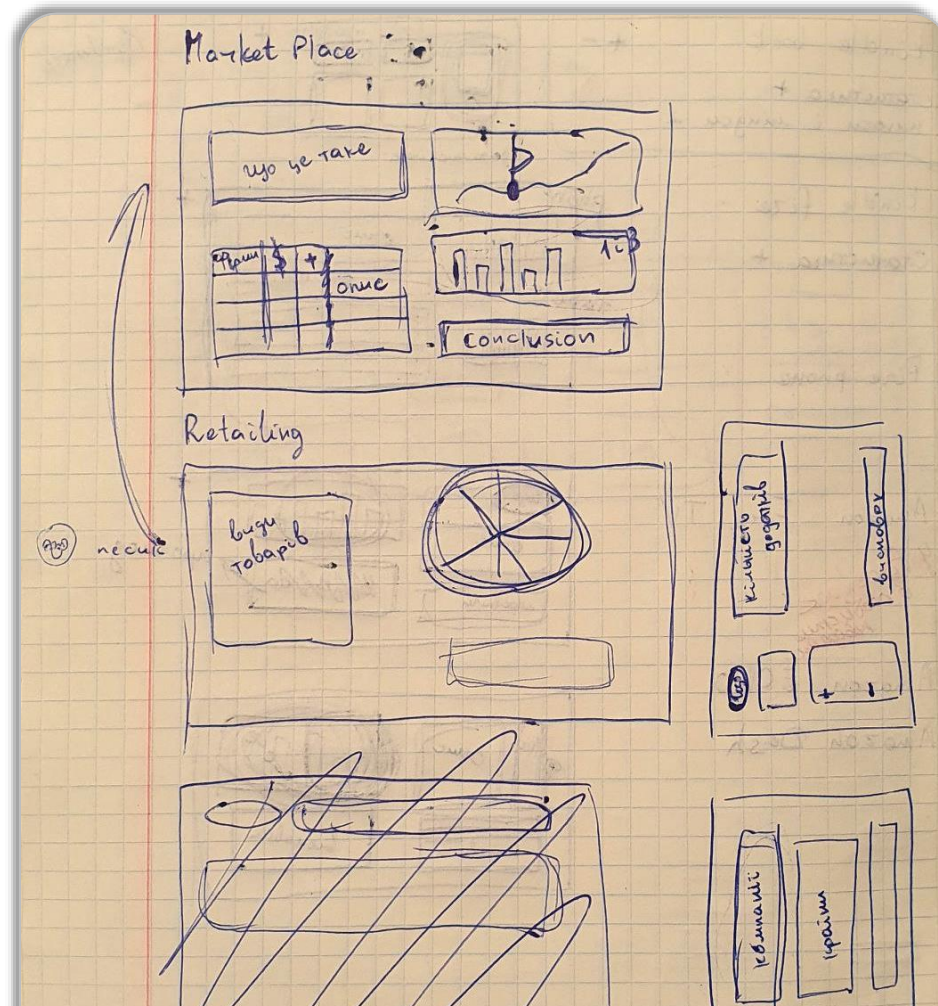 Market Place
що це таке
$ +
опис
conclusion
Retailing
види
товарів
кількість
додатків
висновок
+
-
компанії
країни